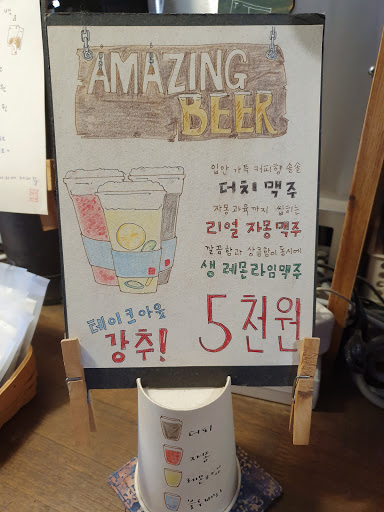 AMAZING
BEER
입안 가득 커피향 솔솔
더치 맥주
자몽과육까지 씹히는
리얼 자몽맥주
깔끔함과 상큼함이 동시에
생 레몬라임맥주
테이크아웃
강추!
5천원
더치
자몽
레몬라임